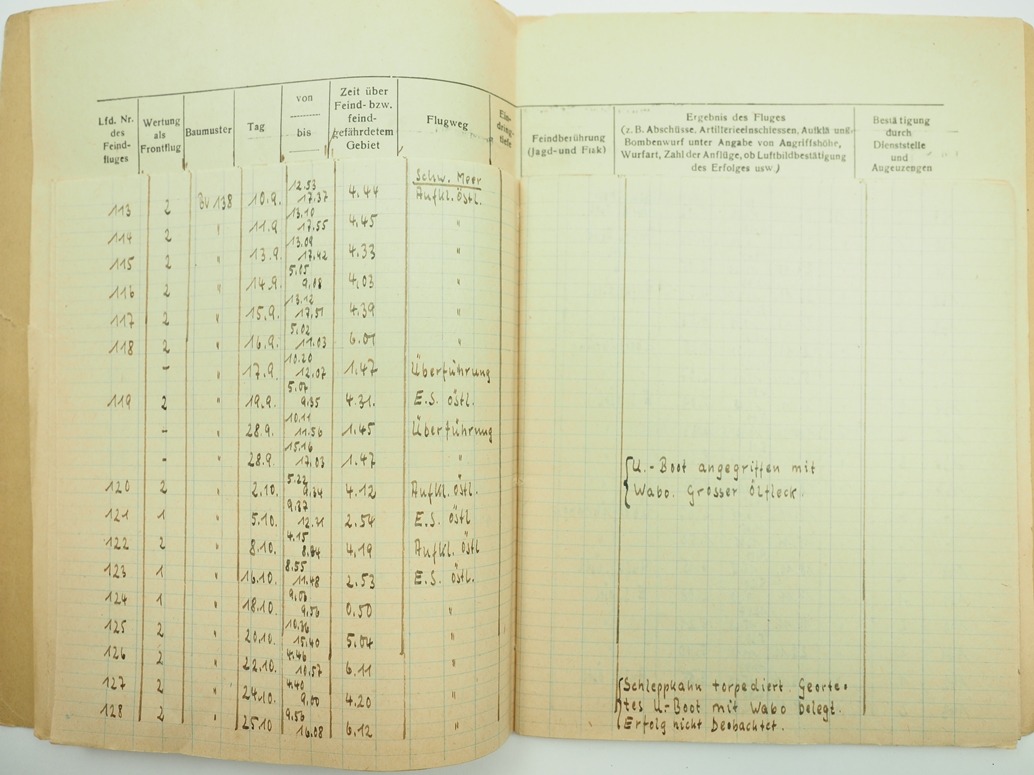 Lfd. Nr. des Feind-fluges | Wertung als Frontflug | Baumuster | Tag | von bis | Zeit über Feind- bzw. feind-gefährdetem Gebiet | Flugweg | Ein-dring-tiefe | Feindberührung (Jagd- und Flak) | Ergebnis des Fluges (z. B. Abschüsse, Artillerieeinschiessen, Aufklä ung Bombenwurf unter Angabe von Angriffshöhe, Wurfart, Zahl der Anflüge, ob Luftbildbestätigung des Erfolges usw.) | Bestätigung durch Dienststelle und Augenzeugen
Schw. Meer
113 2 BV 138 10.9. 12.53 17.37 4.44 Aufkl. östl.
114 2 " 11.9 13.10 17.55 4.45 "
115 2 " 13.9. 13.09 17.42 4.33 "
116 2 " 14.9. 5.05 9.08 4.03 "
117 2 " 15.9. 13.12 17.51 4.39 "
118 2 " 16.9. 5.02 11.03 6.01 "
- " 17.9. 10.20 12.07 1.47 Überführung
119 2 " 19.9. 5.04 9.35 4.31. E.S. östl.
- " 28.9. 10.11 11.56 1.45 Überführung
- " 28.9. 15.16 17.03 1.47 "
120 2 " 2.10. 5.22 9.34 4.12 Aufkl. östl. U.-Boot angegriffen mit
Wabo. Grosser Ölfleck.
121 1 " 5.10. 9.37 12.31 2.54 E.S. östl
122 2 " 8.10. 4.15 8.34 4.19 Aufkl. östl
123 1 " 16.10. 8.55 11.48 2.53 E.S. östl.
124 1 " 18.10. 9.06 9.56 0.50 "
125 2 " 20.10. 10.36 15.40 5.04 "
126 2 " 22.10. 4.46 10.57 6.11 "
127 2 " 24.10. 4.40 9.00 4.20 " Schleppkahn torpediert. Georte-
tes U-Boot mit Wabo belegt.
128 2 25.10 9.56 16.08 6.12 " Erfolg nicht beobachtet.